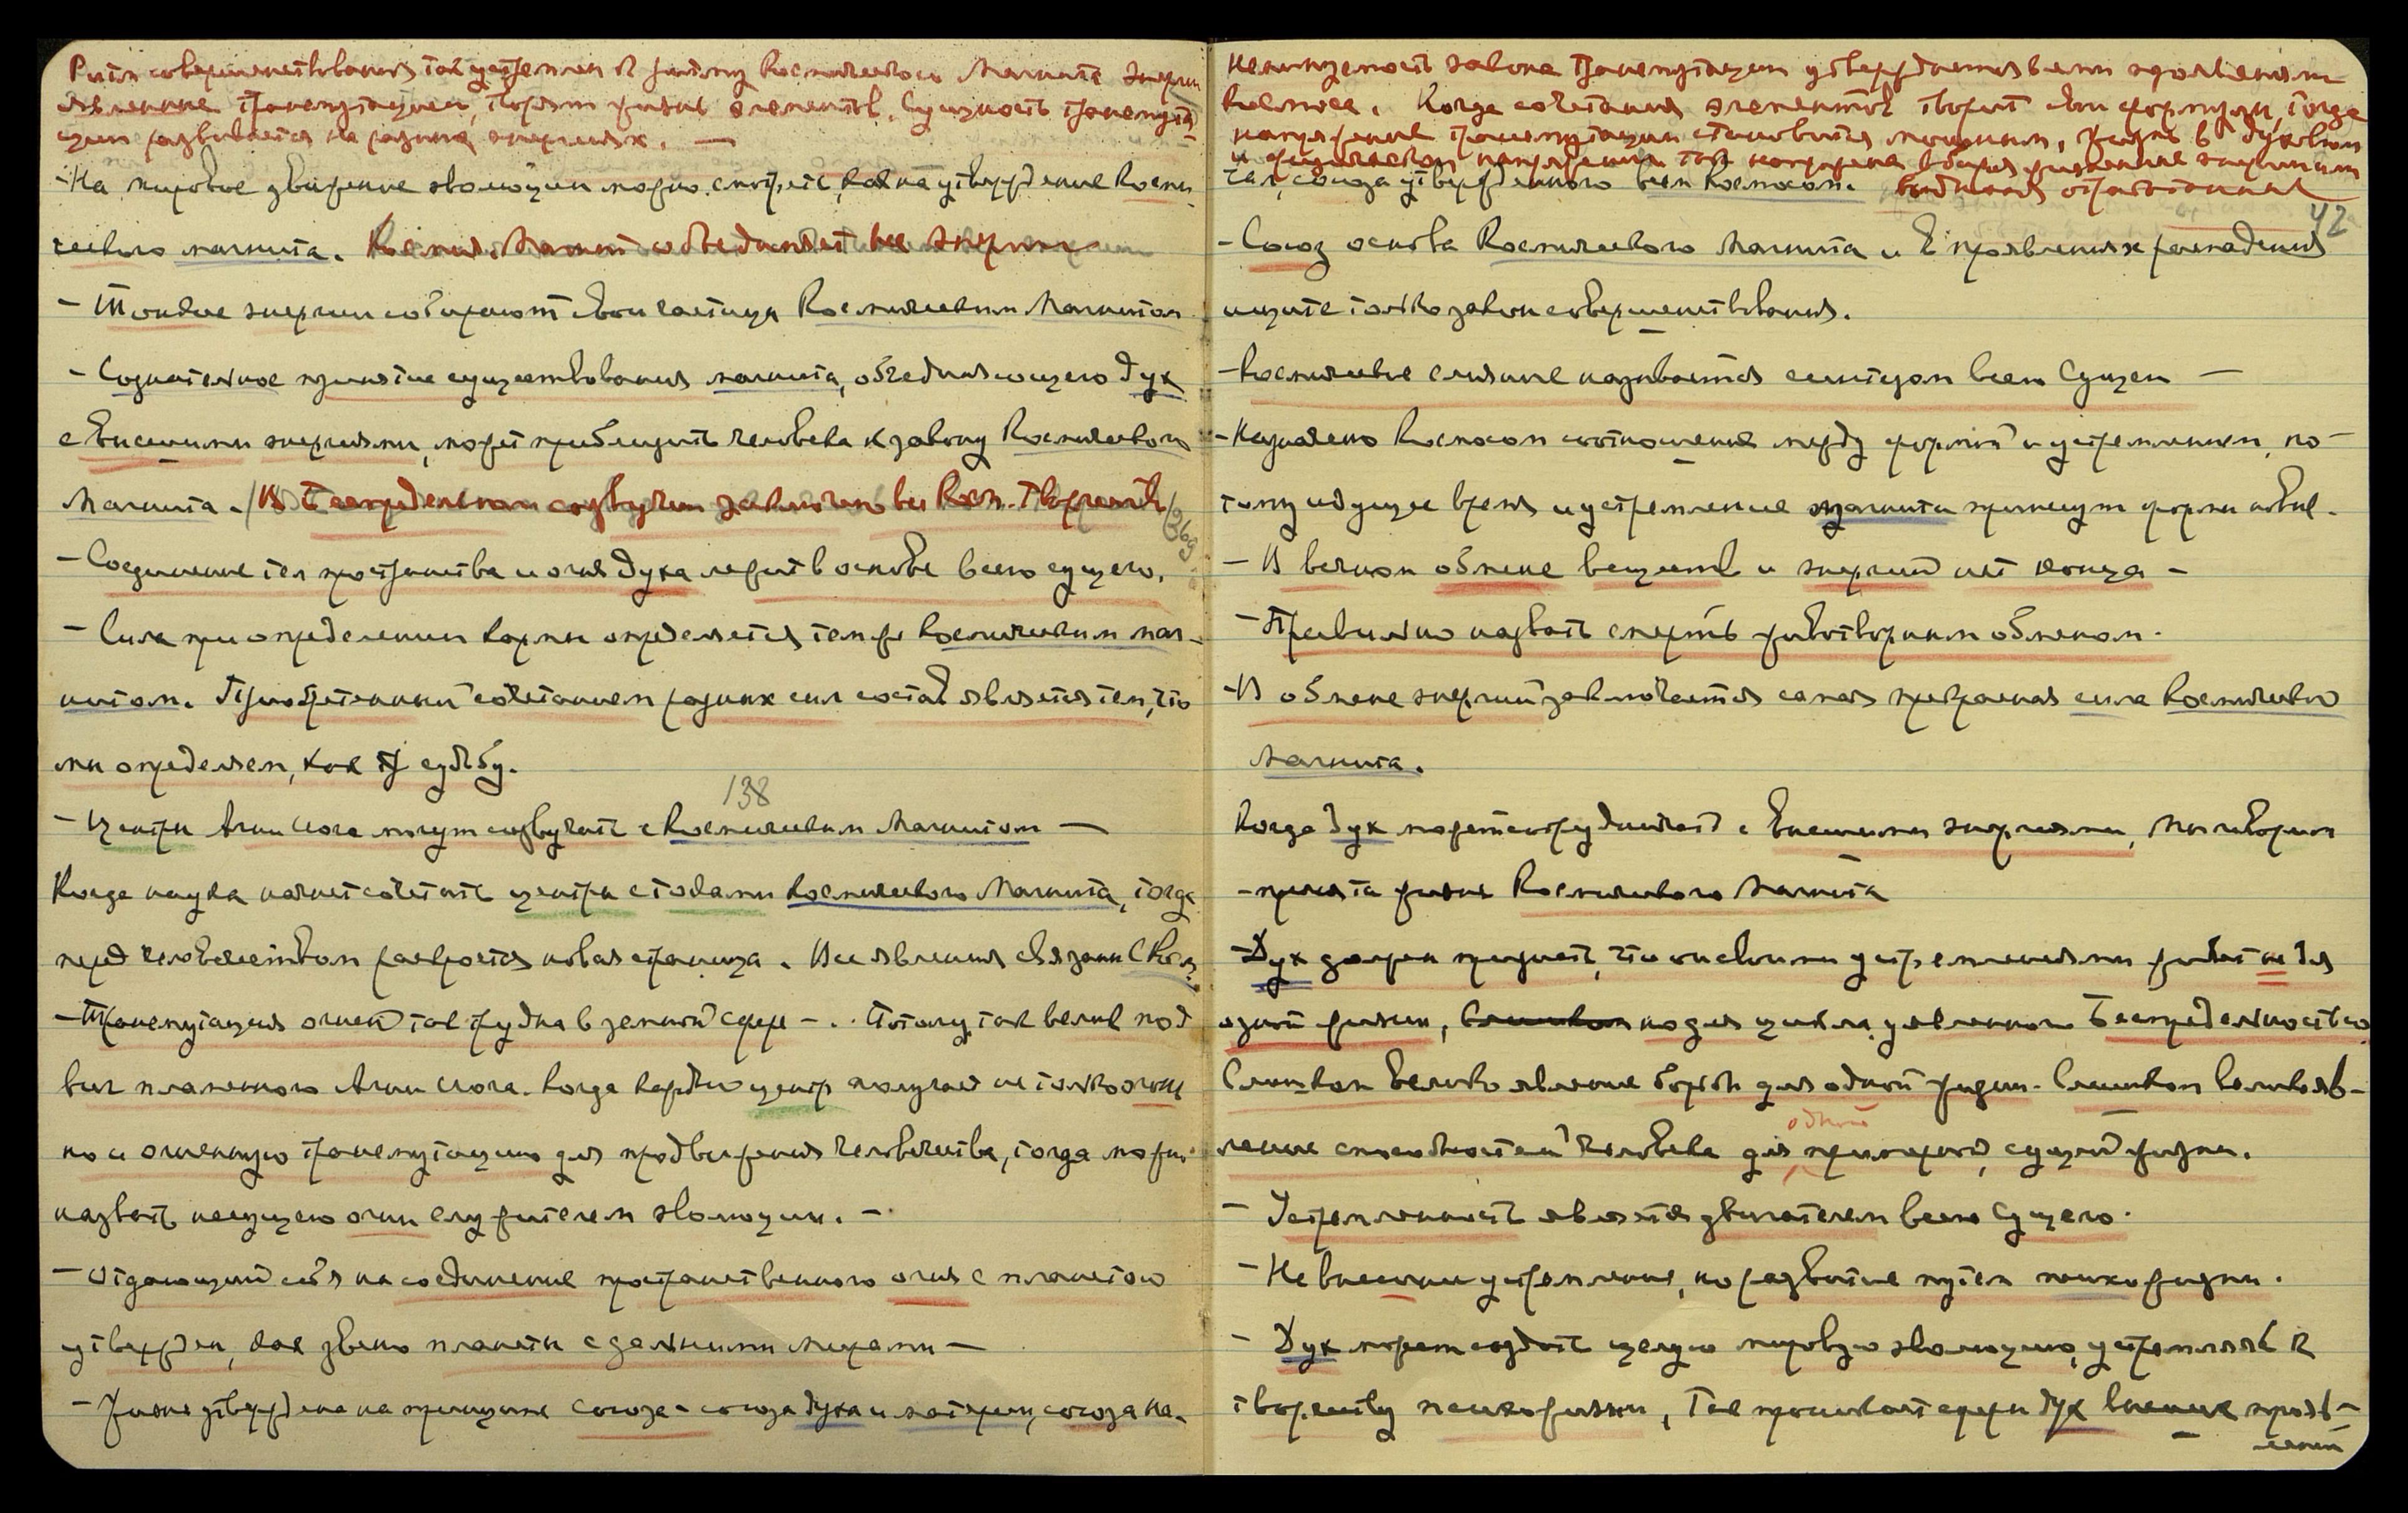 Ритм совершенствования так устремлен к ритму Космического Магнита
явление трансмутации, творят жизнь элементов. Сущность трансмута
ции развивается на разных энергиях. —
- На мировое движение эволюции можно смотреть, как на утверждение Косми
ческого магнита. Космич. Магнит объединяет все энергии
- Тонкие энергии собирают свои частицы Космическим Магнитом
- Сознательное принятие существования магнита, объединяющего дух
с высшими энергиями, может приблизить человека к закону Космического
Магнита. /В Беспредельном созвучии заключены все Косм. Творчеств/ 369
- Соединение тел пространства и огня духа лежит в основе всего сущего.
- Сила при определении кармы определяется тем же Космическим маг-
нитом. Приобретенный сочетанием разных сил состав является тем, что
мы определяем, как судьбу.
138
- Центры Агни Йога могут созвучать с Космическим Магнитом —
Когда наука начнет сочетать центры с токами Космического Магнита, тогда
перед человечеством раскроется новая страница. Все явления связаны с Косм.
- Трансмутация огней так трудна в земной сфере -. Потому так велик под
виг пламенного Агни Йога. Когда каждый центр получает не только огонь
но и огненную трансмутацию для продвижения человечества, тогда можем
назвать несущего огни служителем эволюции. -
- Отдающий себя на соединение пространственного огня с планетою
утвержден, как звено планеты с дальними мирами —
- Жизнь утверждена на принципе союза - союза духа и материи, союза на-
Непреложность закона трансмутации утверждается всеми проявлениями
Космоса. Когда сочетания элементов творят свои формулы, тогда
напряжение трансмутации становится мощным, жизнь в духовном
и физическом напряжении так напряжена
чал, союза утвержденного всем Космосом.
42
- Союз основа Космического Магнита и в проявлениях распадения
ищите только закон совершенствования.
- Космическое слияние называется синтезом всем Сущем —
- Назначено Космосом соотношение между формой и устремлением, по-
тому идущее время и устремление магнита примут формы новые.
- В вечном обмене веществ и энергий нет конца -
- Правильно назвать смерть животворным обменом.
- В обмене энергий заключается самая прекрасная сила Космического
Магнита.
Когда дух может сотрудничать с высшими энергиями, мы говорим
- принята жизнь Космического Магнита
- Дух должен признать, что он своими устремлениями живет не для
одной жизни, но для цикла, явленного Беспредельностью
Слишком велико явление борьбы для одной жизни. Слишком велико яв-
ление способностей человека для одной, сущей жизни.
- Устремленность является двигателем всего Сущего.
- Не внешнее устремление, но развитие путем психожизни.
- Дух может создать целую мировую эволюцию, устремляясь к
творчеству психожизни, Так проникает сферы дух высших прояв-
лений